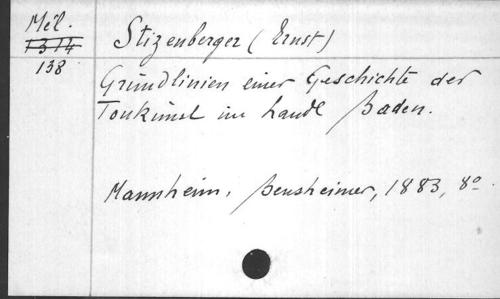 Mél.
1314
138
Stizenberger (Ernst)
Grundlinien einer Geschichte der
Tonkunst im Lande Baden.
Mannheim, Bensheimer, 1883, 8º